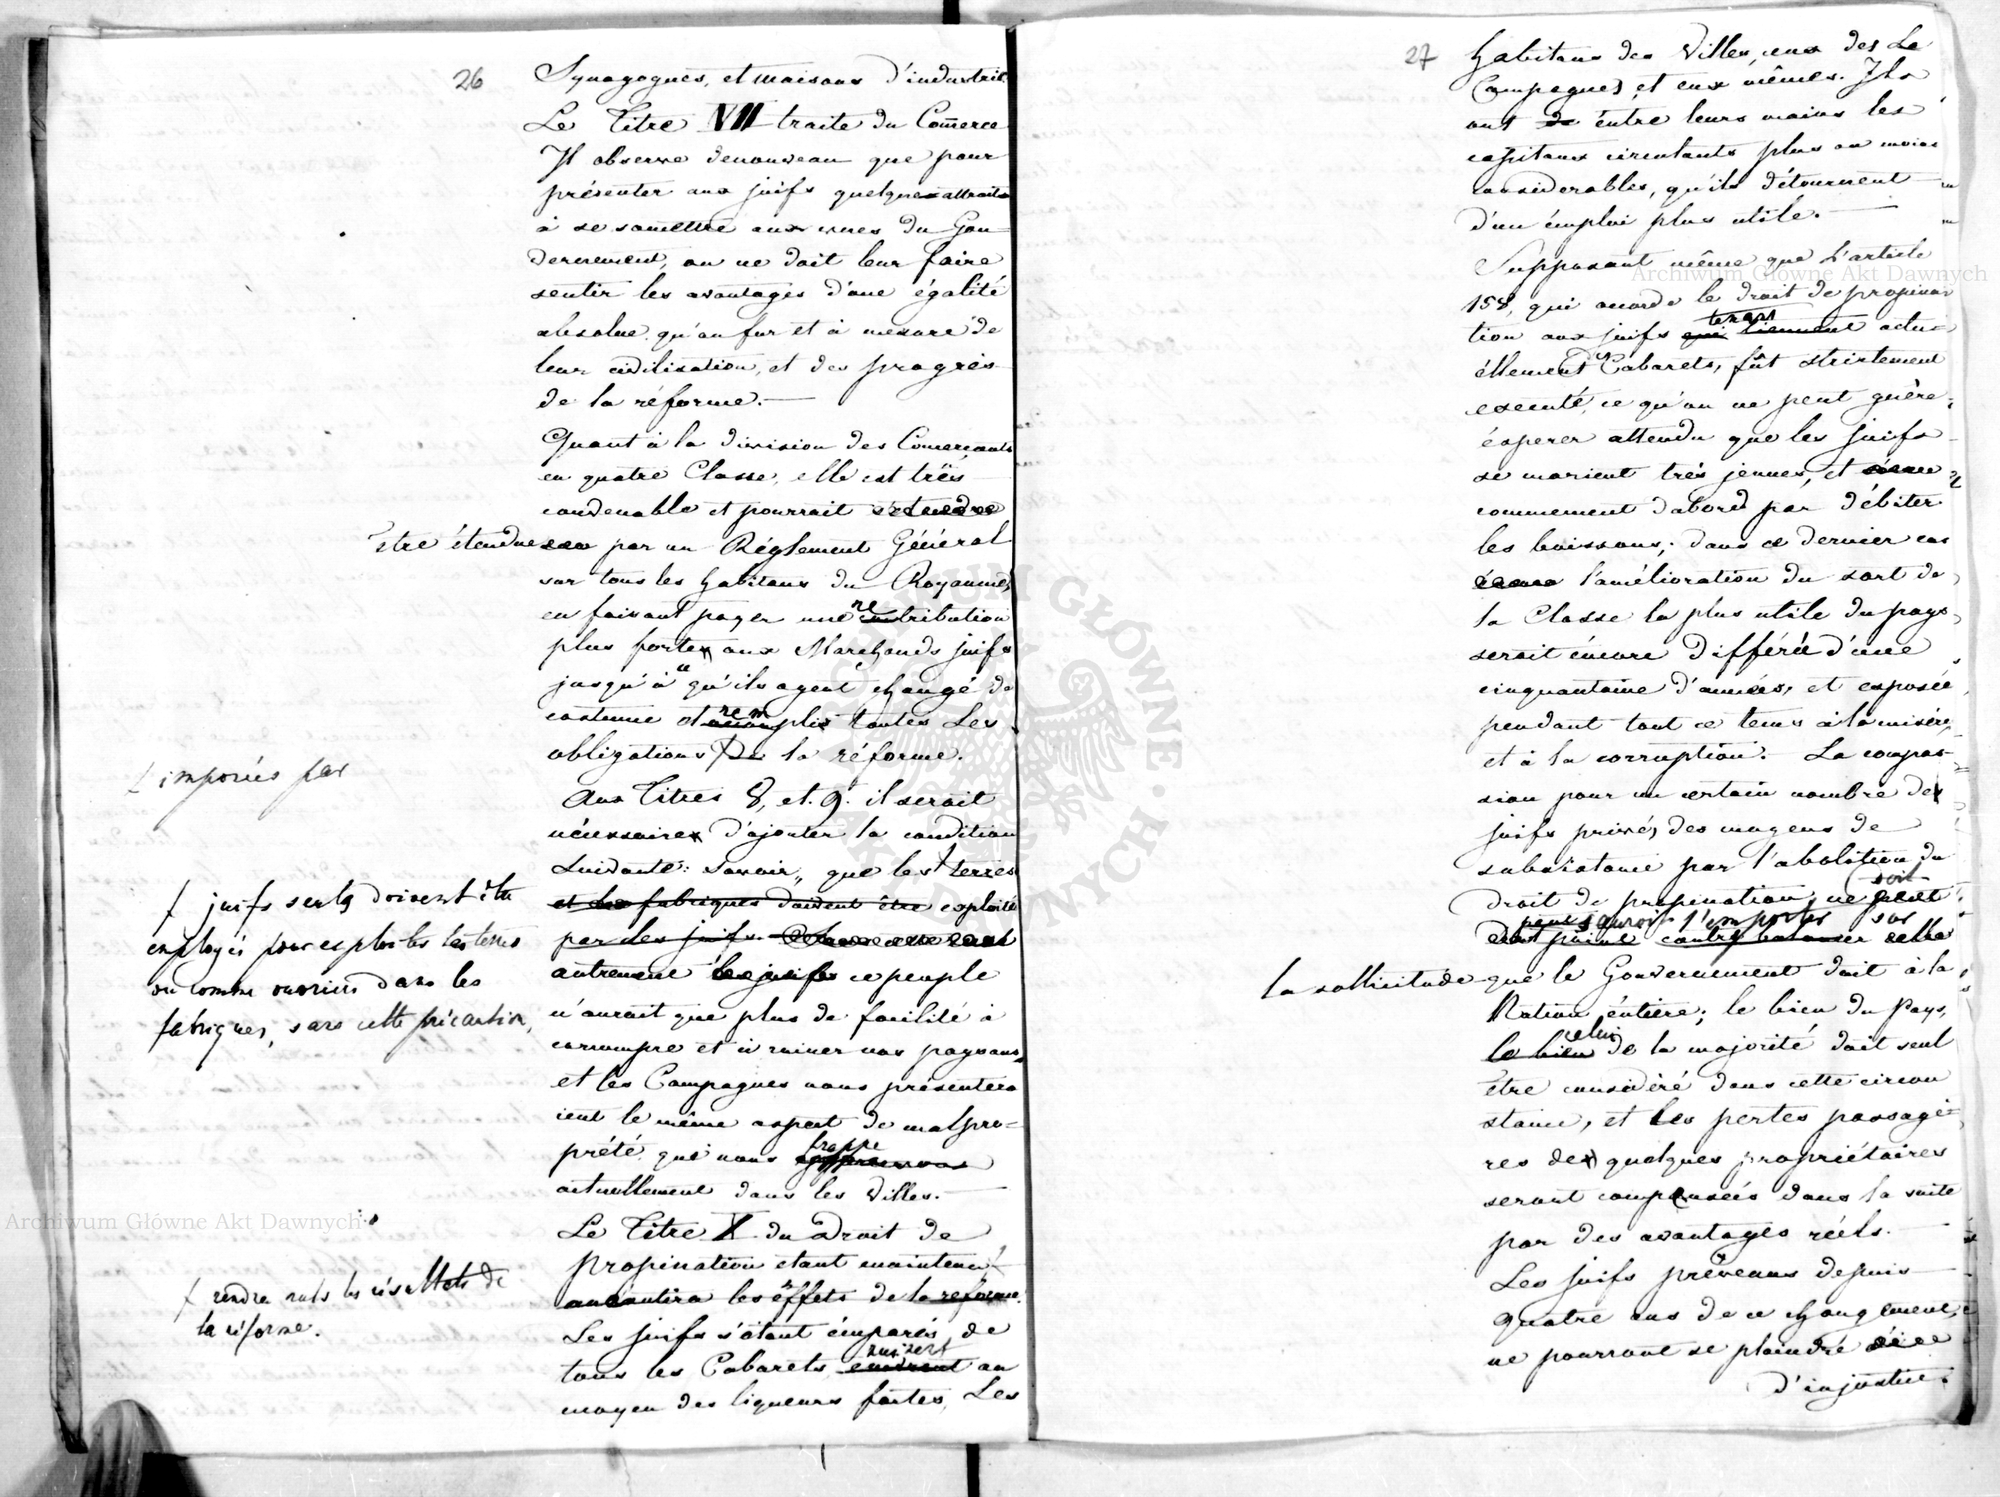 26
Synagogues, et maisons d'industrie.
Le Titre VII traite du Comerce
Il observe denouveau que pour
présenter aux juifs quelques attraits
à se somettre aux vues du Gou
vernement, on ne doit leur faire
sentir les avantages d'une égalité
absolue qu'au fur et à mesure de
leur civilisation, et des progrès
de la réforme.
Quant à la division des Comerçants
en quatre Classe, elle est très
convenable et pourrait s'etendre
être étendue par un Réglement Général
sur tous les habitans du Royaume,
en faisant payer une rétribution
plus forte aux Marchands juifs
jusqu'à qu'ils ayent changé de
costume et remplis toutes Les
obligations de la réforme.
† imposées par
Aux Titres 8, et 9. il serait
nécessaire d'ajouter la condition
suivante: savoir, que les † terres
et les fabriques doivent être exploité
par des juifs.
† juifs seuls doivent être
employés pour exploiter les terres
ou comme ouvriers dans les
fabriques, sans cette précaution,
autrement les juifs ce peuple
n'aurait que plus de facilité à
corrompre et à ruiner nos paysans,
et les Campagnes nous présentera
ient le même aspect de malpro=
prété qui nous frappe
actuellement dans les Villes.
Le Titre X du Droit de
propination etant maintenu †
anéantira les éffets de la reforme.
† rendra nuls les résultats de
la réforme.
Les juifs s'étant émparés de
tous les Cabarets nuisent au
moyen des liqueurs fortes, Les
27
habitans des Villes, ceux des Le
Campagnes et eux mêmes. Ils
ont de entre leurs mains les
capitaux circulants plus ou moins
considerables, qu'ils détournent
d'un émploi plus utile.
Supposant même que l'article
158, qui acorde le droit de propina
tion aux juifs qui tiennent actu
tenans
éllement Cabarets, fût strictement
executé, ce qu'on ne peut guère
éspérer attendu que les juifs
se marient très jeunes, et
commencent d'abord par débiter
les boissons; dans ce dernier cas
l'amélioration du sort de
la Classe la plus utile du pays
serait éncore différé d'une
cinquantaine d'années, et exposée
pendant tout ce tems à la misère,
et à la corruption. La compas=
sion pour un certain nombre de
juifs privés des moyens de
subsistance par l'abolition du
droit de propination, ne
peut l'emporter sur
contre balancer celle
la sollicitude que le Gouvernement doit à la
Nation éntière; le bien du Pays,
celui
le bien de la majorité doit seul
être considéré dans cette circon
stance, et les pertes passagè=
res de quelques propriétaires
seront compensées dans la suite
par des avantages réels.
Les juifs prévenus depuis
quatre ans de ce changement,
ne pourront se plaindre
d'injustice.
Archiwum Główne Akt Dawnych
Archiwum Główne Akt Dawnych
ARCHIWUM GŁÓWNE AKT DAWNYCH